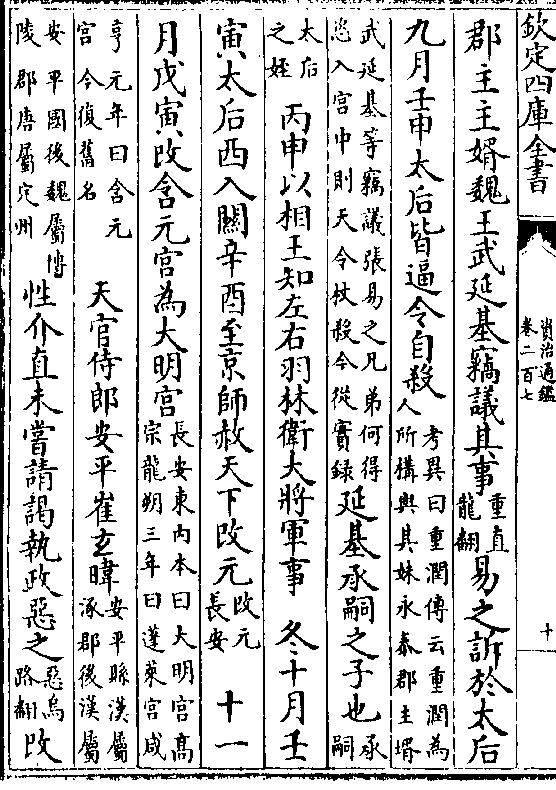 欽定四庫全書
資治通鑑
卷二百七
十
郡主主婿魏王武延基竊議其事重直龍翻易之訴於太后
九月壬申太后皆逼令自殺考異曰重潤傳云重潤為人所構與其妹永泰郡主壻
武延基等竊議張易之兄弟何得恣入宮中則天令杖殺今從實録延基承嗣之子也承嗣
太后之姪 丙申以相王知左右羽林衛大將軍事 冬十月壬
寅太后西入關辛酉至京師赦天下改元改元長安 十一
月戊寅改含元宮為大明宮長安東内本曰大明宮高宗龍朔三年曰蓬萊宮咸
亨元年曰含元宮今復舊名 天官侍郎安平崔玄暐安平縣漢屬涿郡後漢屬
安平國後魏屬博陵郡唐屬定州 性介直未嘗請謁執政惡之惡烏路翻改